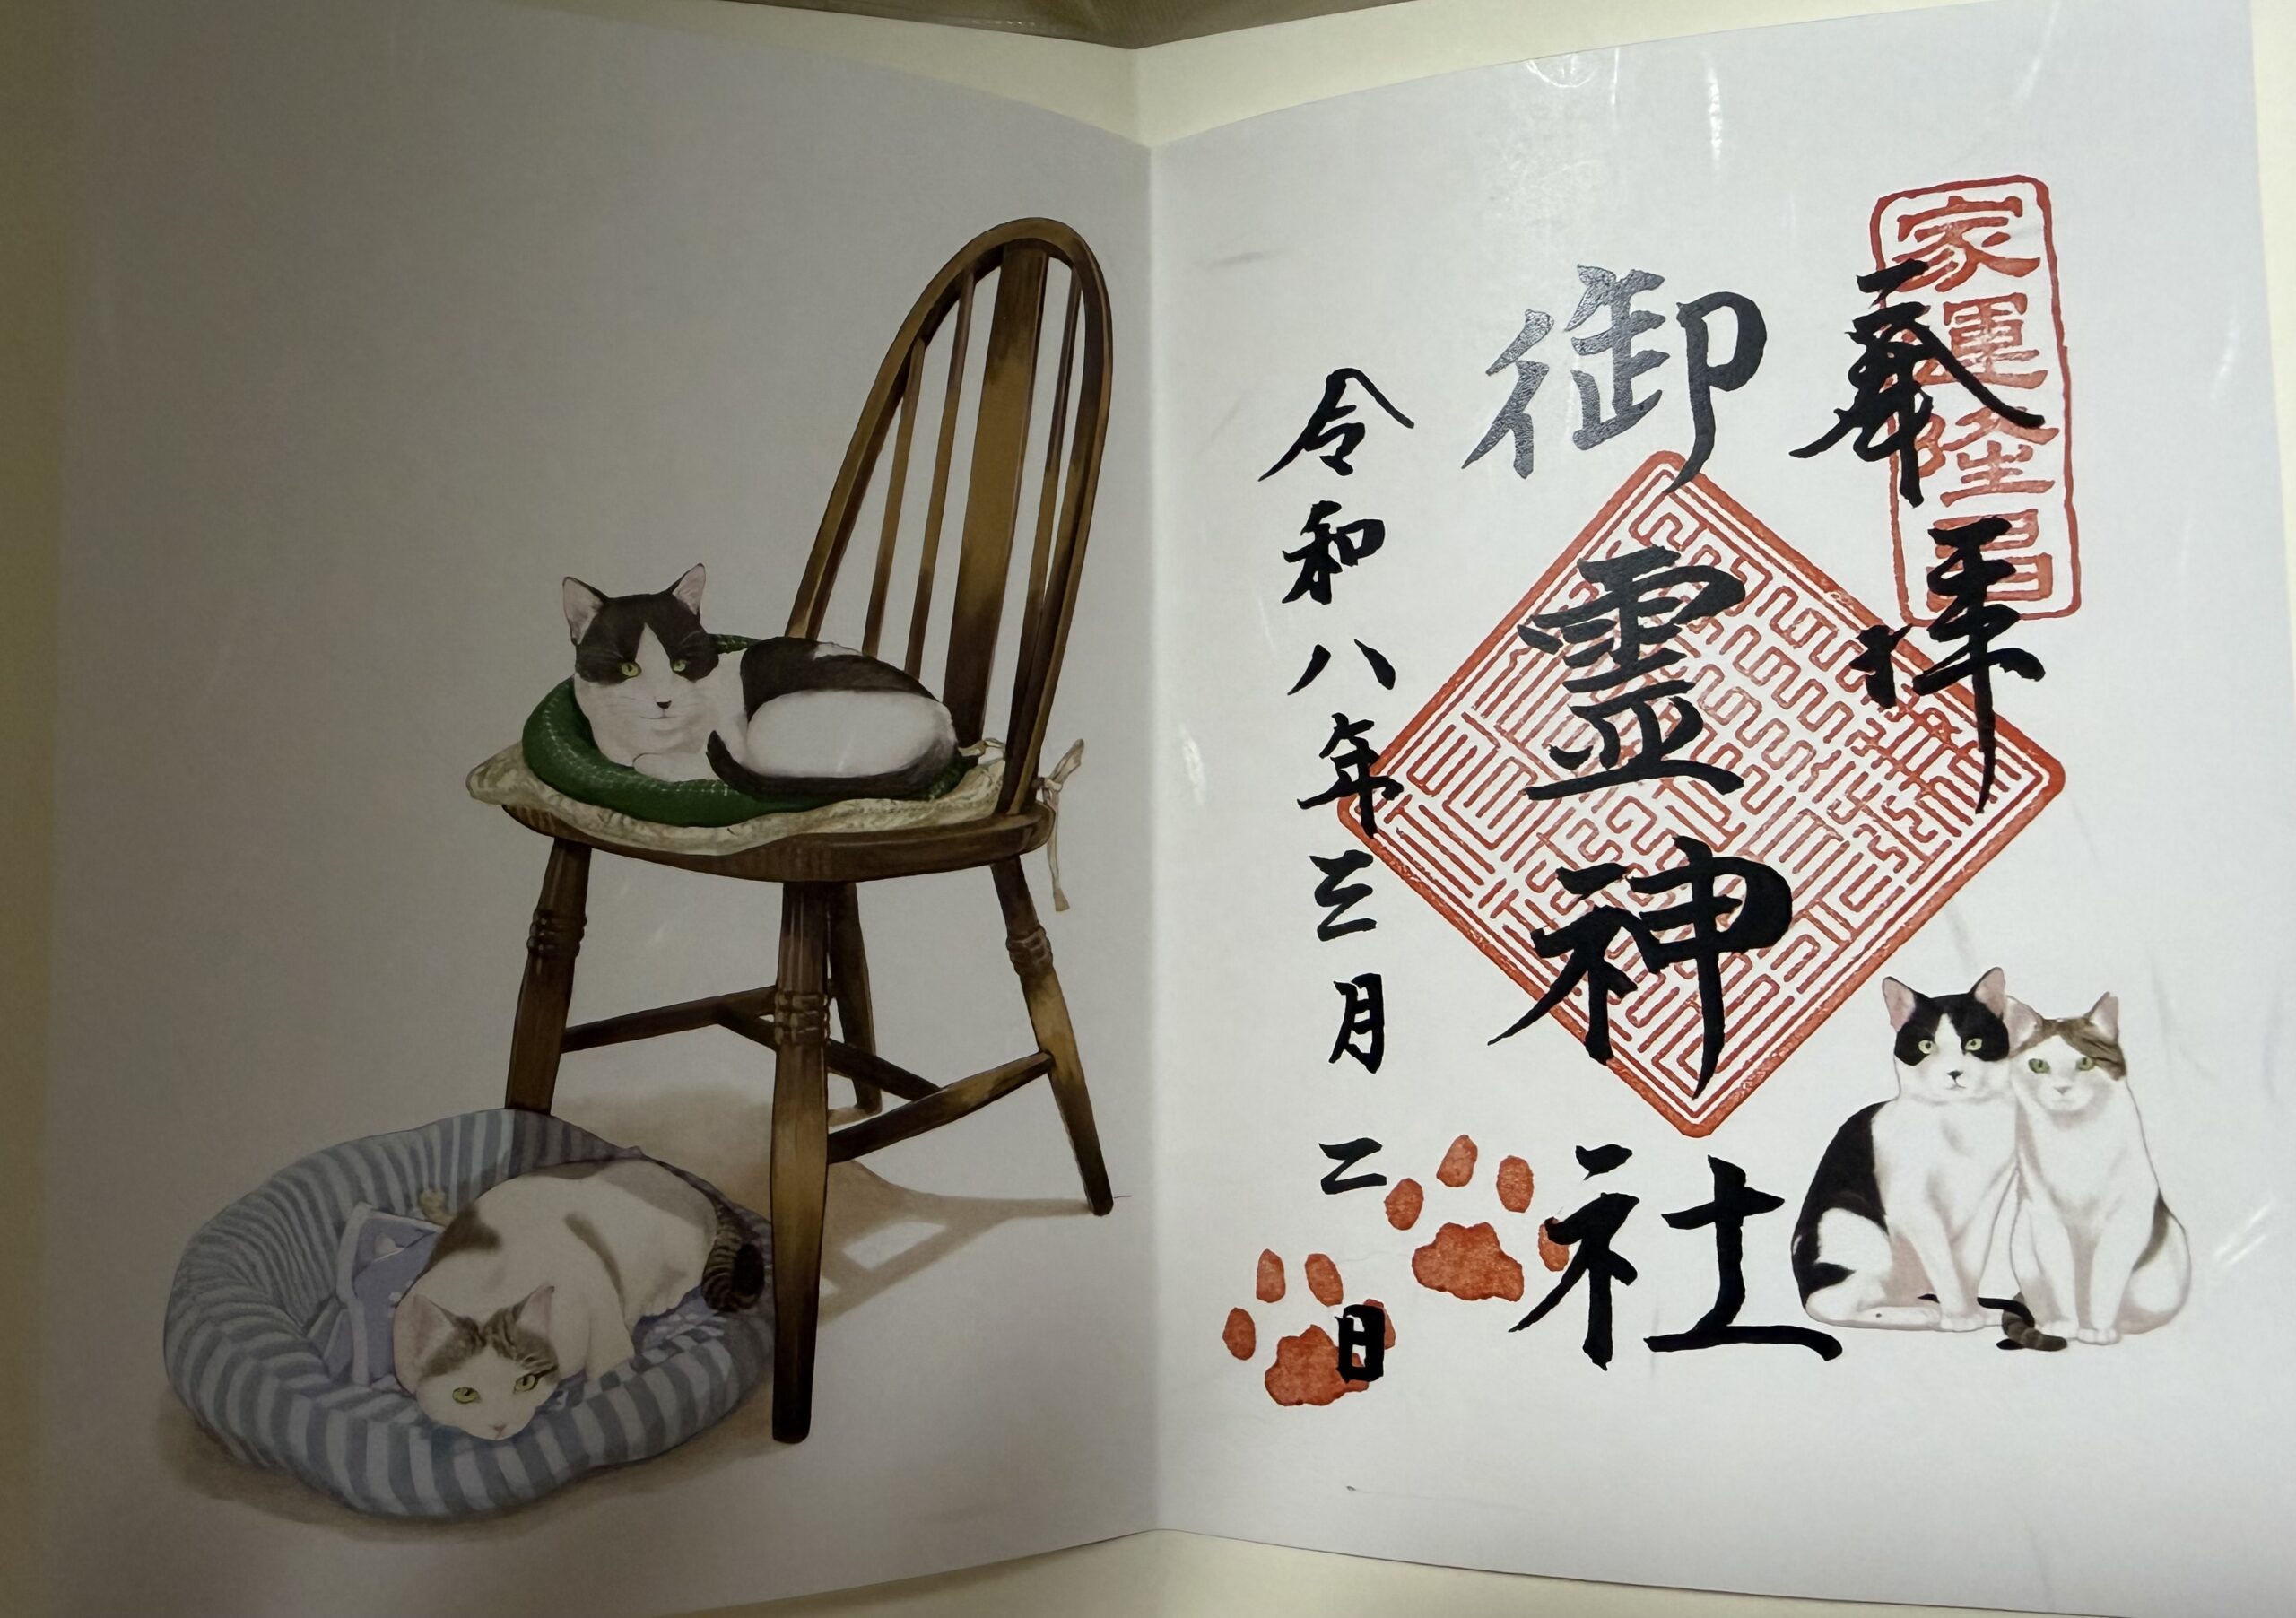 家運隆昌
奉拝
御霊神社
令和八年三月二日